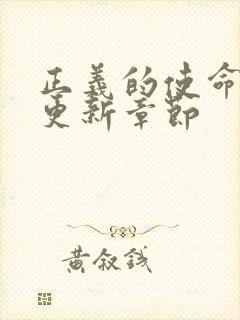 正義的使命
更新章節
黄叙錢